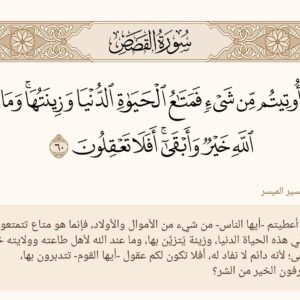 سُورَةُ القَصَصِ
أُوتِيتُم مِّن شَيْءٍ فَمَتَٰعُ الْحَيَوٰةِ الدُّنْيَا وَزِينَتُهَا ۚ وَمَا
اللَّهِ خَيْرٌ وَأَبْقَىٰٓ ۚ أَفَلَا تَعْقِلُونَ ٦٠
سير الميسر
أعطيتم -أيها الناس- من شيء من الأموال والأولاد، فإنما هو متاع تتمتعو
ي هذه الحياة الدنيا، وزينة يُتزيَّن بها، وما عند الله لأهل طاعته وولايته خ
ى؛ لأنه دائم لا نفاد له، أفلا تكون لكم عقول -أيها القوم- تتدبرون بها،
رفون الخير من الشر؟